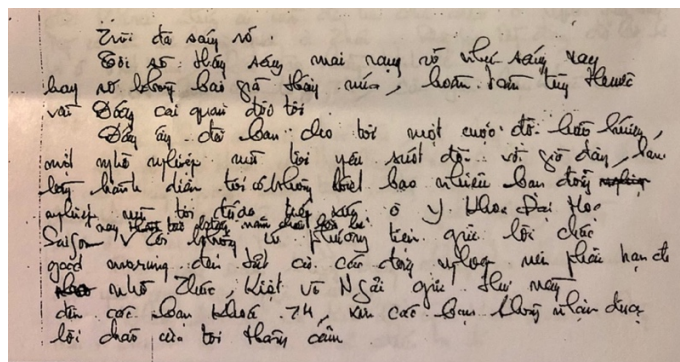 Trời đã sáng rõ.
Tôi sẽ thấy sáng mai rạng rỡ như sáng nay
hay sẽ không bao giờ thấy nữa, hoàn toàn tùy thuộc
vào Đấng cai quản đời tôi
Đấng ấy đã ban cho tôi một cuộc đời hào hứng
một nghề nghiệp mà tôi yêu suốt đời và giờ đây,
hãnh diện tôi có không biết bao nhiêu bạn đồng
nghiệp mà tôi tiếp xúc ở Y Khoa Đại Học
Saigon. Tôi không có phương tiện gửi lời chào
good morning đến tất cả các đồng nghiệp nên phải hạn chế
nhờ Thúc Kiệt và Ngãi gửi thư này
đến các bạn khoá 74, xin các bạn không nhận được
lời chào của tôi thông cảm